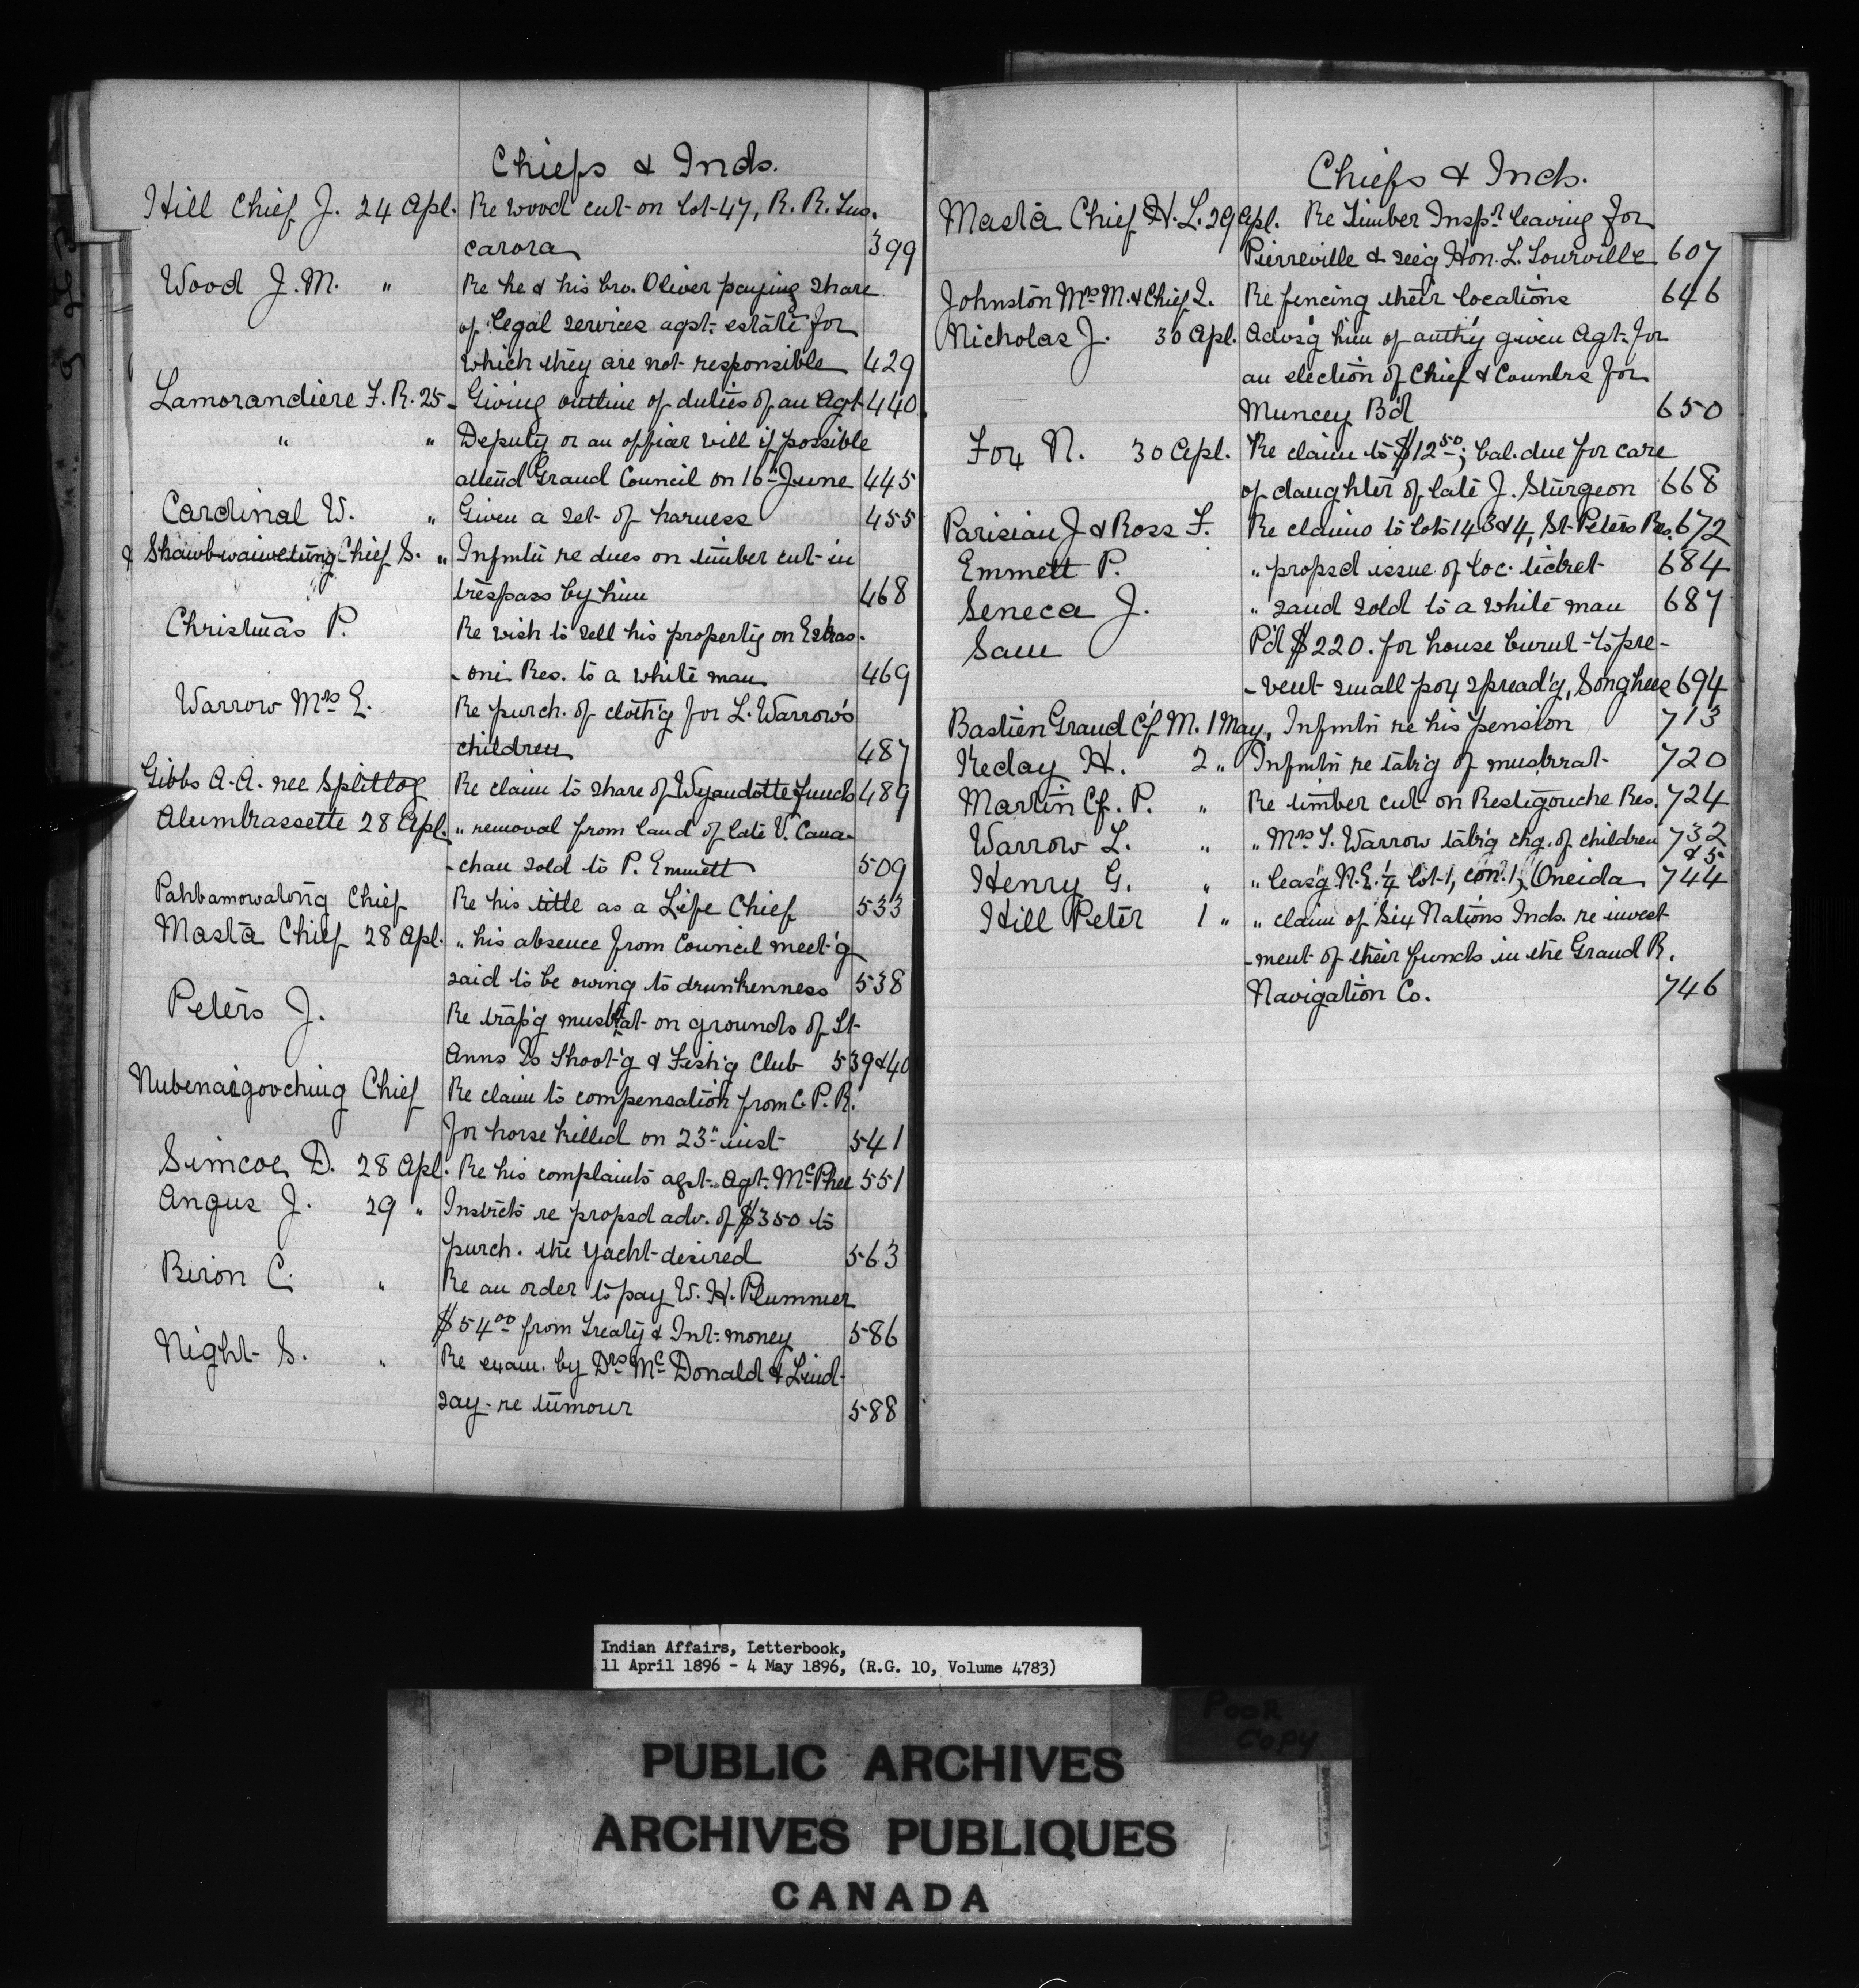 Chiefs & Inds.
Hill Chief J. 24 Apl. Re wood cut on lot 47, R. R. Tus-
carora 399
Wood J. M. " Re he & his bro. Oliver paying share
of legal services agst. estate for
which they are not responsible 429
Lamorandiere F. R. 25 - Giving outline of duties of an Agt. 440
" " Deputy or an officer will if possible
attend Grand Council on 16th June 445
Cardinal W. " Given a set of harness 455
& Shawbwaiwetung Chief S. " Infmtn re dues on timber cut in
trespass by him 468
Christmas P. Re wish to sell his property on Eskas-
-oni Res. to a white man 469
Warrow Mrs E. Re purch. of cloth'g for L. Warrow's
children 487
Gibbs A. A. nee Splitlog Re claim to share of Wyandotte funds 489
Alumbrassette 28 Apl. " removal from land of late V. Cana-
-chau sold to P. Emmett 509
Pahbamowatong Chief Re his title as a Life Chief 533
Masta Chief 28 Apl. " his absence from Council meet'g
said to be owing to drunkenness 538
Peters J. Re trap'g muskrat on grounds of St.
Anns Is Shoot'g & Fish'g Club 539 & 40
Nubenaigooching Chief Re claim to compensation from C. P. R.
for horse killed on 23" inst 541
Simcoe D. 28 Apl. Re his complaints agst. Agt. McPhee 551
Angus J. 29 " Instrcts re propsd adv. of $350 to
purch. the yacht desired 563
Biron C. " Re an order to pay W. H. Plummer
$54 00 from Treaty & Int. money 586
Night S. " Re exam. by Drs McDonald & Lind-
say re tumour 588
Chiefs & Inds.
Masta Chief H. L. 29 Apl. Re Timber Inspr leaving for
Pierreville & see'g Hon. L. Tourville 607
Johnston Mrs M. & Chief I. Re fencing their locations 646
Nicholas J. 30 Apl. Advs'g him of auth'y given Agt. for
an election of Chief & Counlrs for
Muncey Bd 650
Fox N. 30 Apl. Re claim to $12 50; bal. due for care
of daughter of late J. Sturgeon 668
Parisian J & Ross F. Re claims to lots 14 3 & 4, St. Peters Res. 672
Emmett P. " propsd issue of loc. ticket 684
Seneca J. " sand sold to a white man 687
Sam Pd $220. for house burnt to pre-
-vent small pox spread'g, Songhees 694
Bastien Grand Cf M. 1 May, Infmtn re his pension 713
Keday H. 2 " Infmtn re tak'g of muskrat 720
Martin Cf. P. " Re timber cut on Restigouche Res. 724
Warrow L. " " Mrs T. Warrow tak'g chg. of children 732
& 5
Henry G. " " leas'g N. E. 1/4 lot 1, con. 1, Oneida 744
Hill Peter 1 " " claim of Six Nations Inds. re invest-
-ment of their funds in the Grand R.
Navigation Co. 746
Indian Affairs, Letterbook,
11 April 1896 - 4 May 1896, (R.G. 10, Volume 4783)
POOR
COPY
PUBLIC ARCHIVES
ARCHIVES PUBLIQUES
CANADA